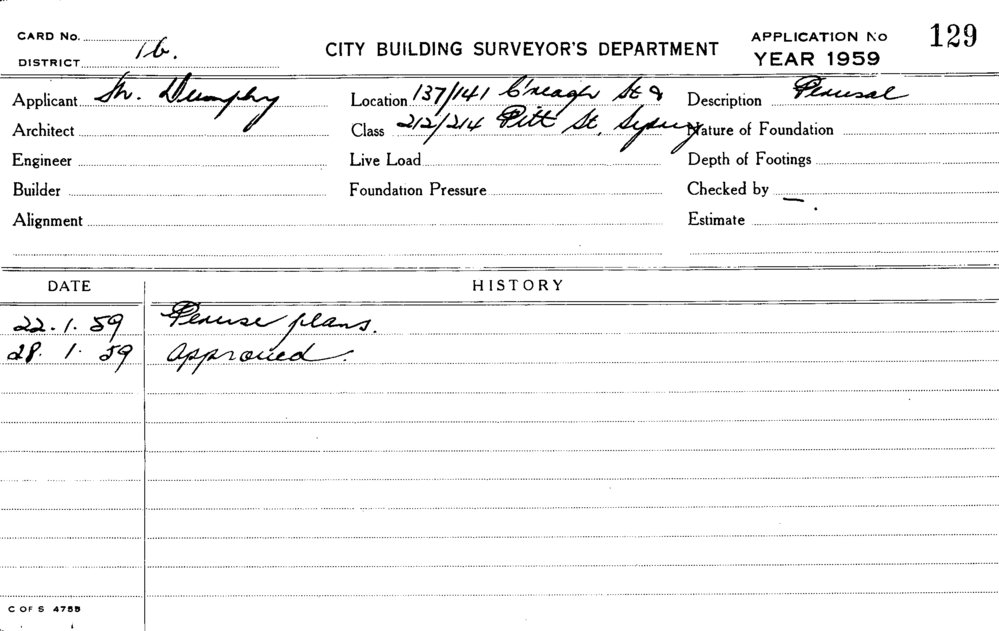 CARD No.
16.
DISTRICT
CITY BUILDING SURVEYOR'S DEPARTMENT
APPLICATION No 129
YEAR 1959
Applicant Dumphy
Location 137/141 C'reagh St &
Description Perusal
Architect
Class 212/214 Pitt St, Sydney
Nature of Foundation
Engineer
Live Load
Depth of Footings
Builder
Foundation Pressure
Checked by —
Alignment
Estimate
DATE HISTORY
22.1.59 Peruse plans.
28.1.59 Approved.
C OF S 4755